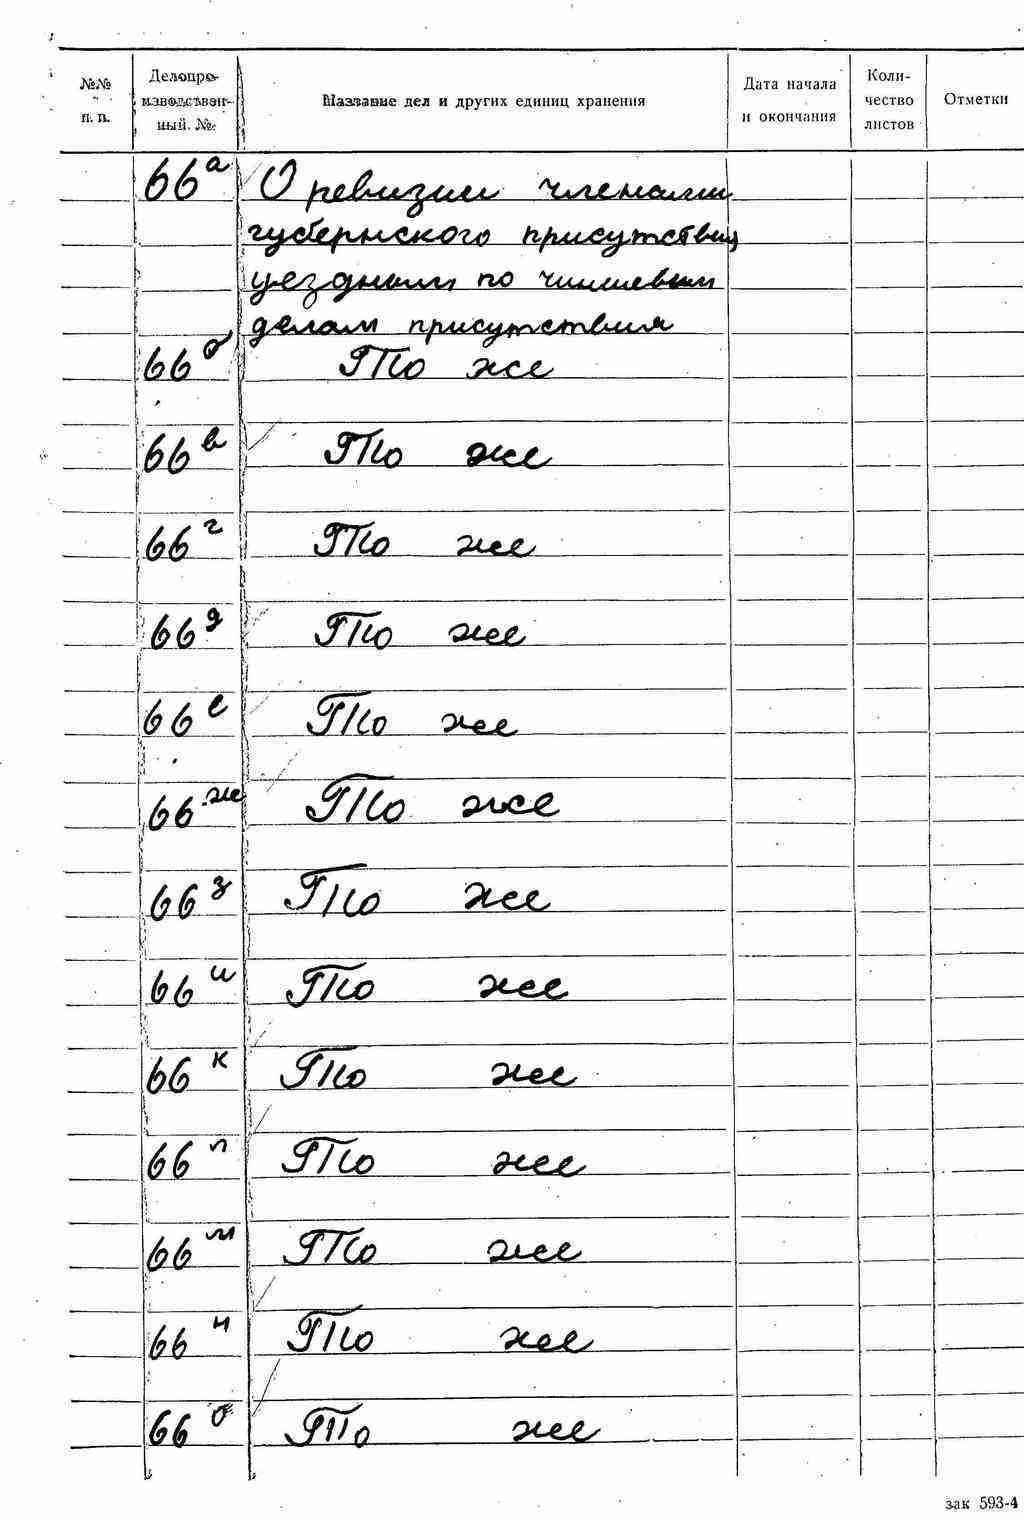 №№ п. п.
Делопро-
изводствен-
ный. №
Название дел и других единиц хранения
Дата начала
и окончания
Коли-
чество
листов
Отметки
66а О ревизии членами
губернского присутствия
уездным по чиншевым
делам присутствия
66б То же
66в То же
66г То же
66д То же
66е То же
66ж То же
66з То же
66и То же
66к То же
66л То же
66м То же
66н То же
66о То же
зак 593-4